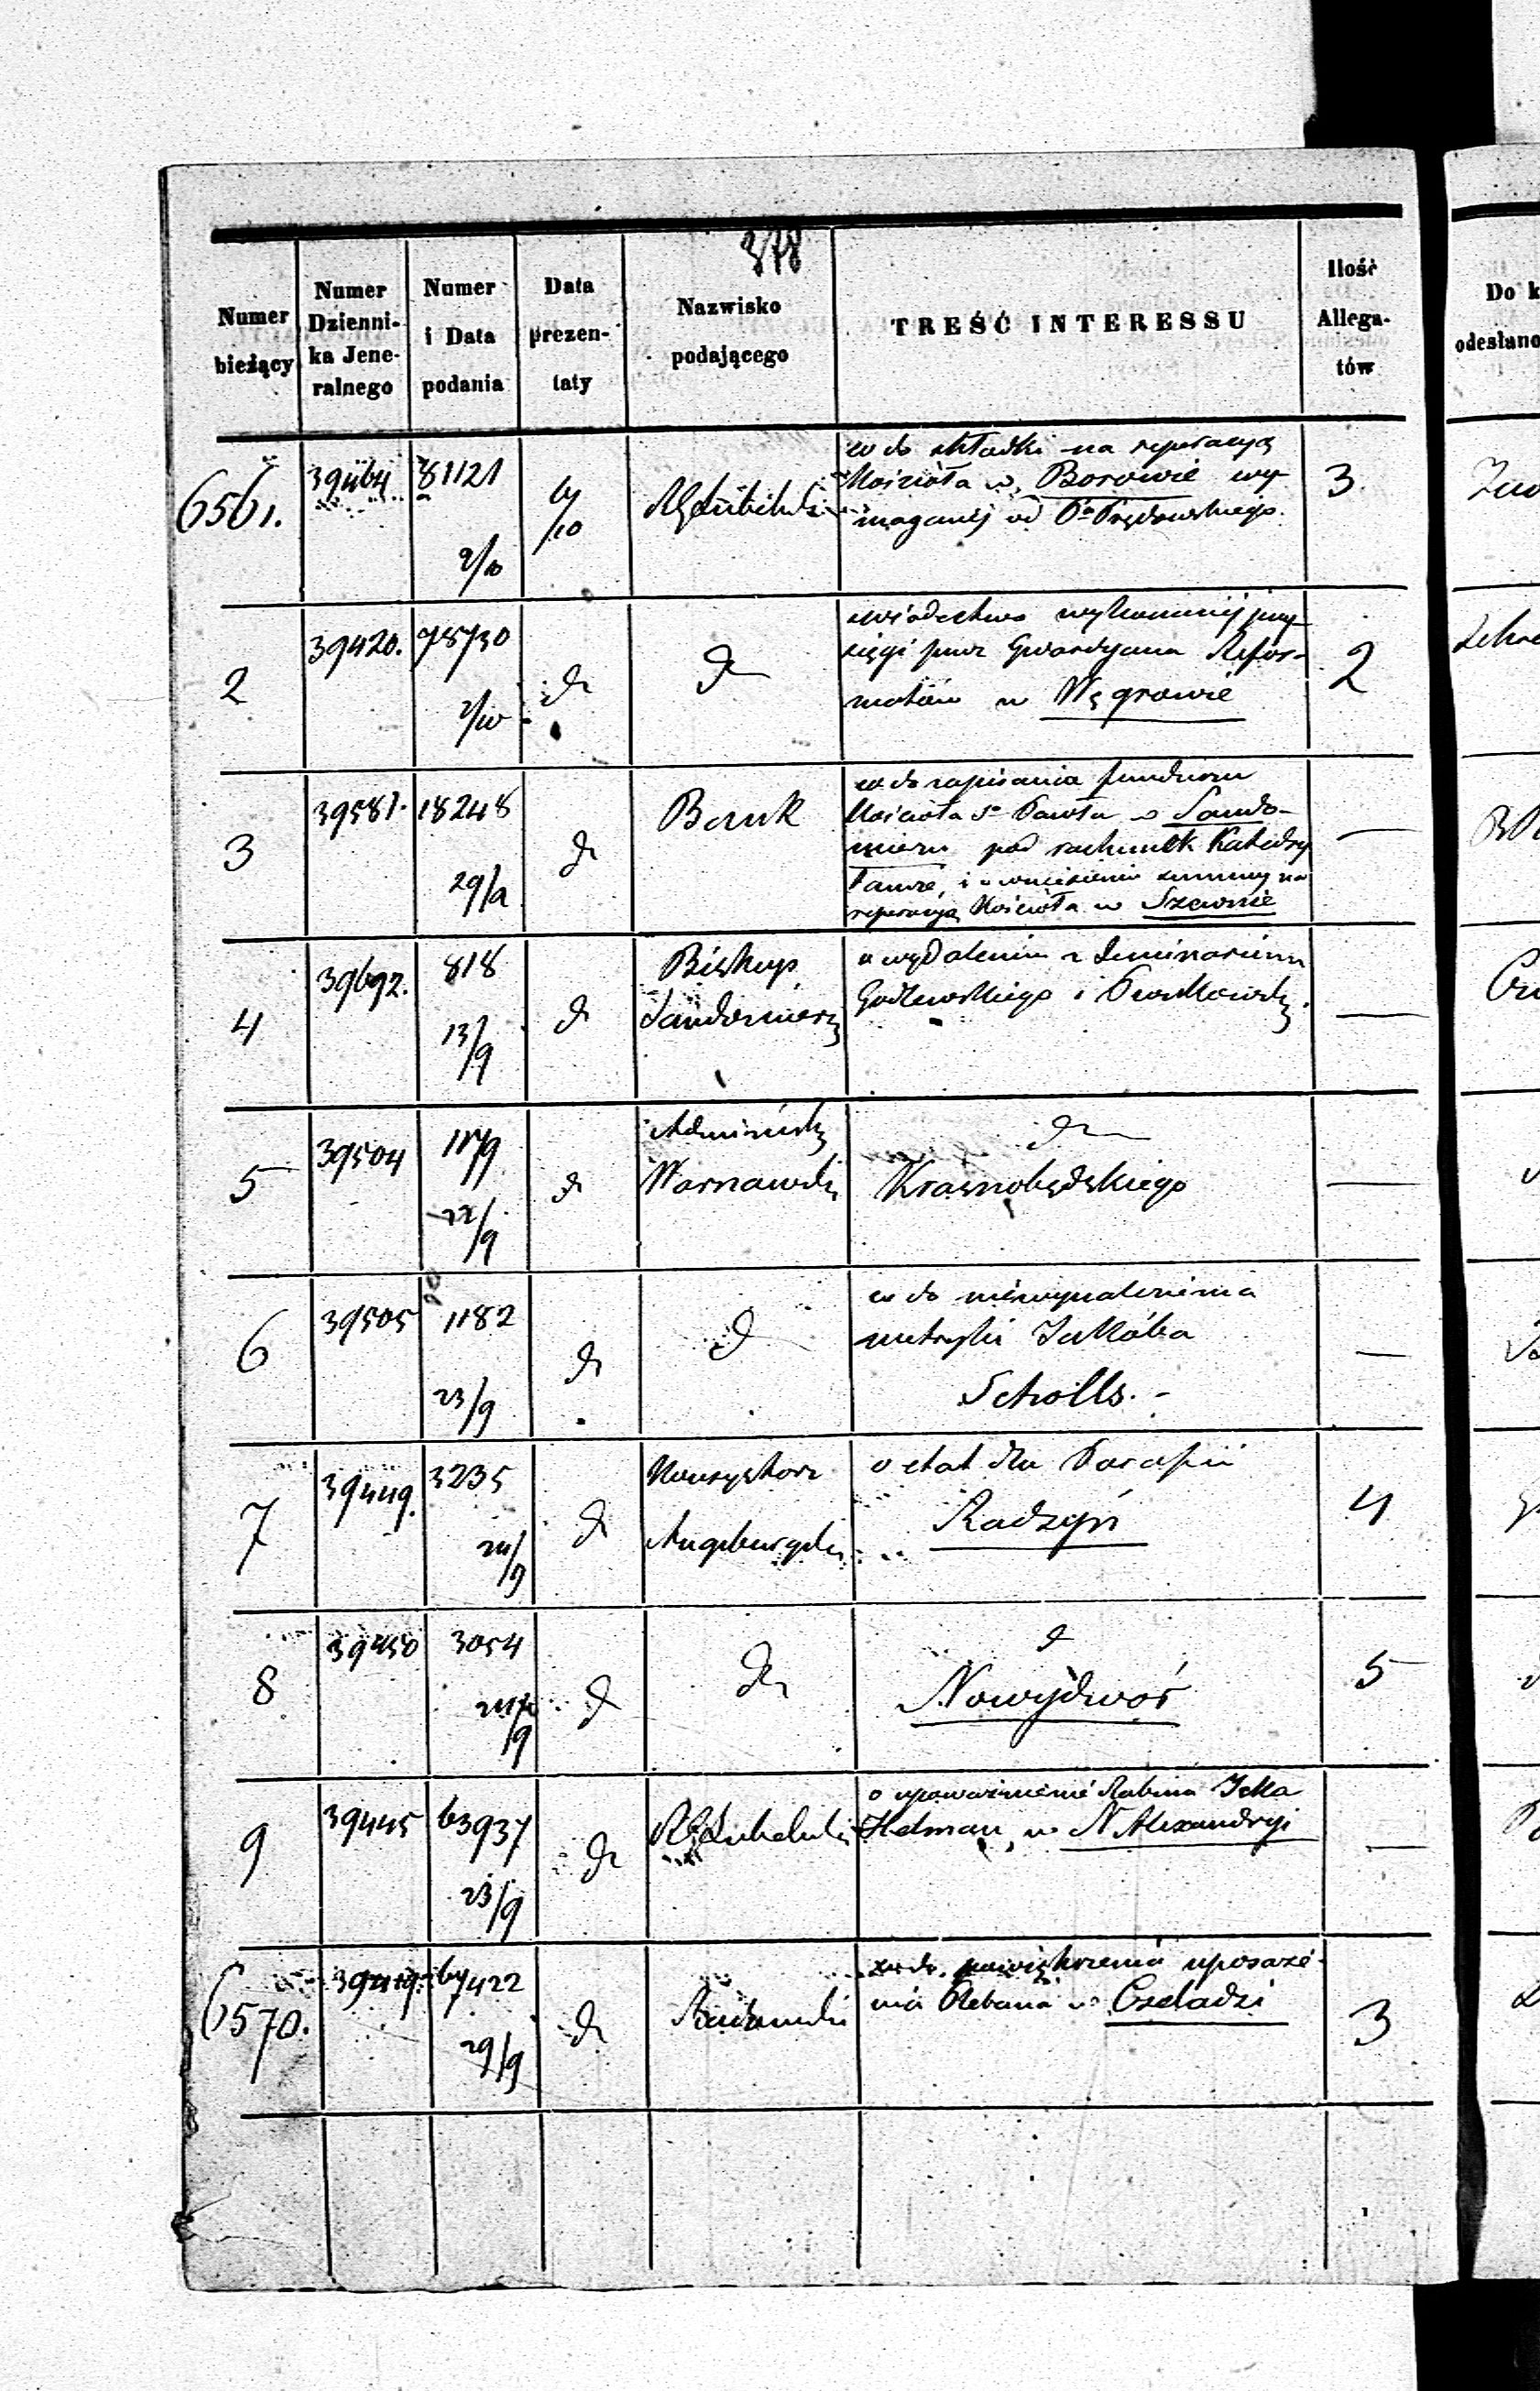 378
Numer bieżący
Numer Dzienni- ka Jene- ralnego
Numer i Data podania
Data prezen- taty
Nazwisko podającego
TREŚĆ INTERESSU
Ilość Allega- tów
Do k
odesłano
6561.
39464
81121
2/10
4/10
RG Lubelski
co do składki na reperacyą
Kościoła w Borowie wy-
maganéj od
3
2
39420.
78730
2/10
d
d
świadectwo wykonanéj przy-
sięgi przez Gwardyana Refor-
matów w Węgrowie
2
3
39581.
18248
29/9
d
Bank
co do zapisania funduszu
Kościoła Sgo Pawła w Sando-
mierzu pod rachunek Katedry
tamże, i o wniesienie summy na
reperacyą Kościoła w Szewnie
—
4
39692.
818
13/9
d
Biskup
Sandomierz
o wydaleniu z Seminarium
Godlewskiego i
—
5
39504
117/9
22/9
d
Administr
Warszawski
d
Krasnobędzkiego
—
6
39505
1182
23/9
d
d
co do niewynalezienia
metryki Jakóba
Scholls. -
—
7
39449.
3235
24/9
d
Konsystorz
Augsburgski
o etat dla Parafii
Radzyń
4
8
39450
3054
24/9
d
d
d
Nowydwór
5
9
39445
63937
23/9
d
RG Lubelski
o upoważnienie Rabina Icka
Helman w N Alexandryi
—
6570.
39419.
67422
29/9
d
Radomski
co do powiększenia uposaże-
nia Plebana w Czeladzi
3